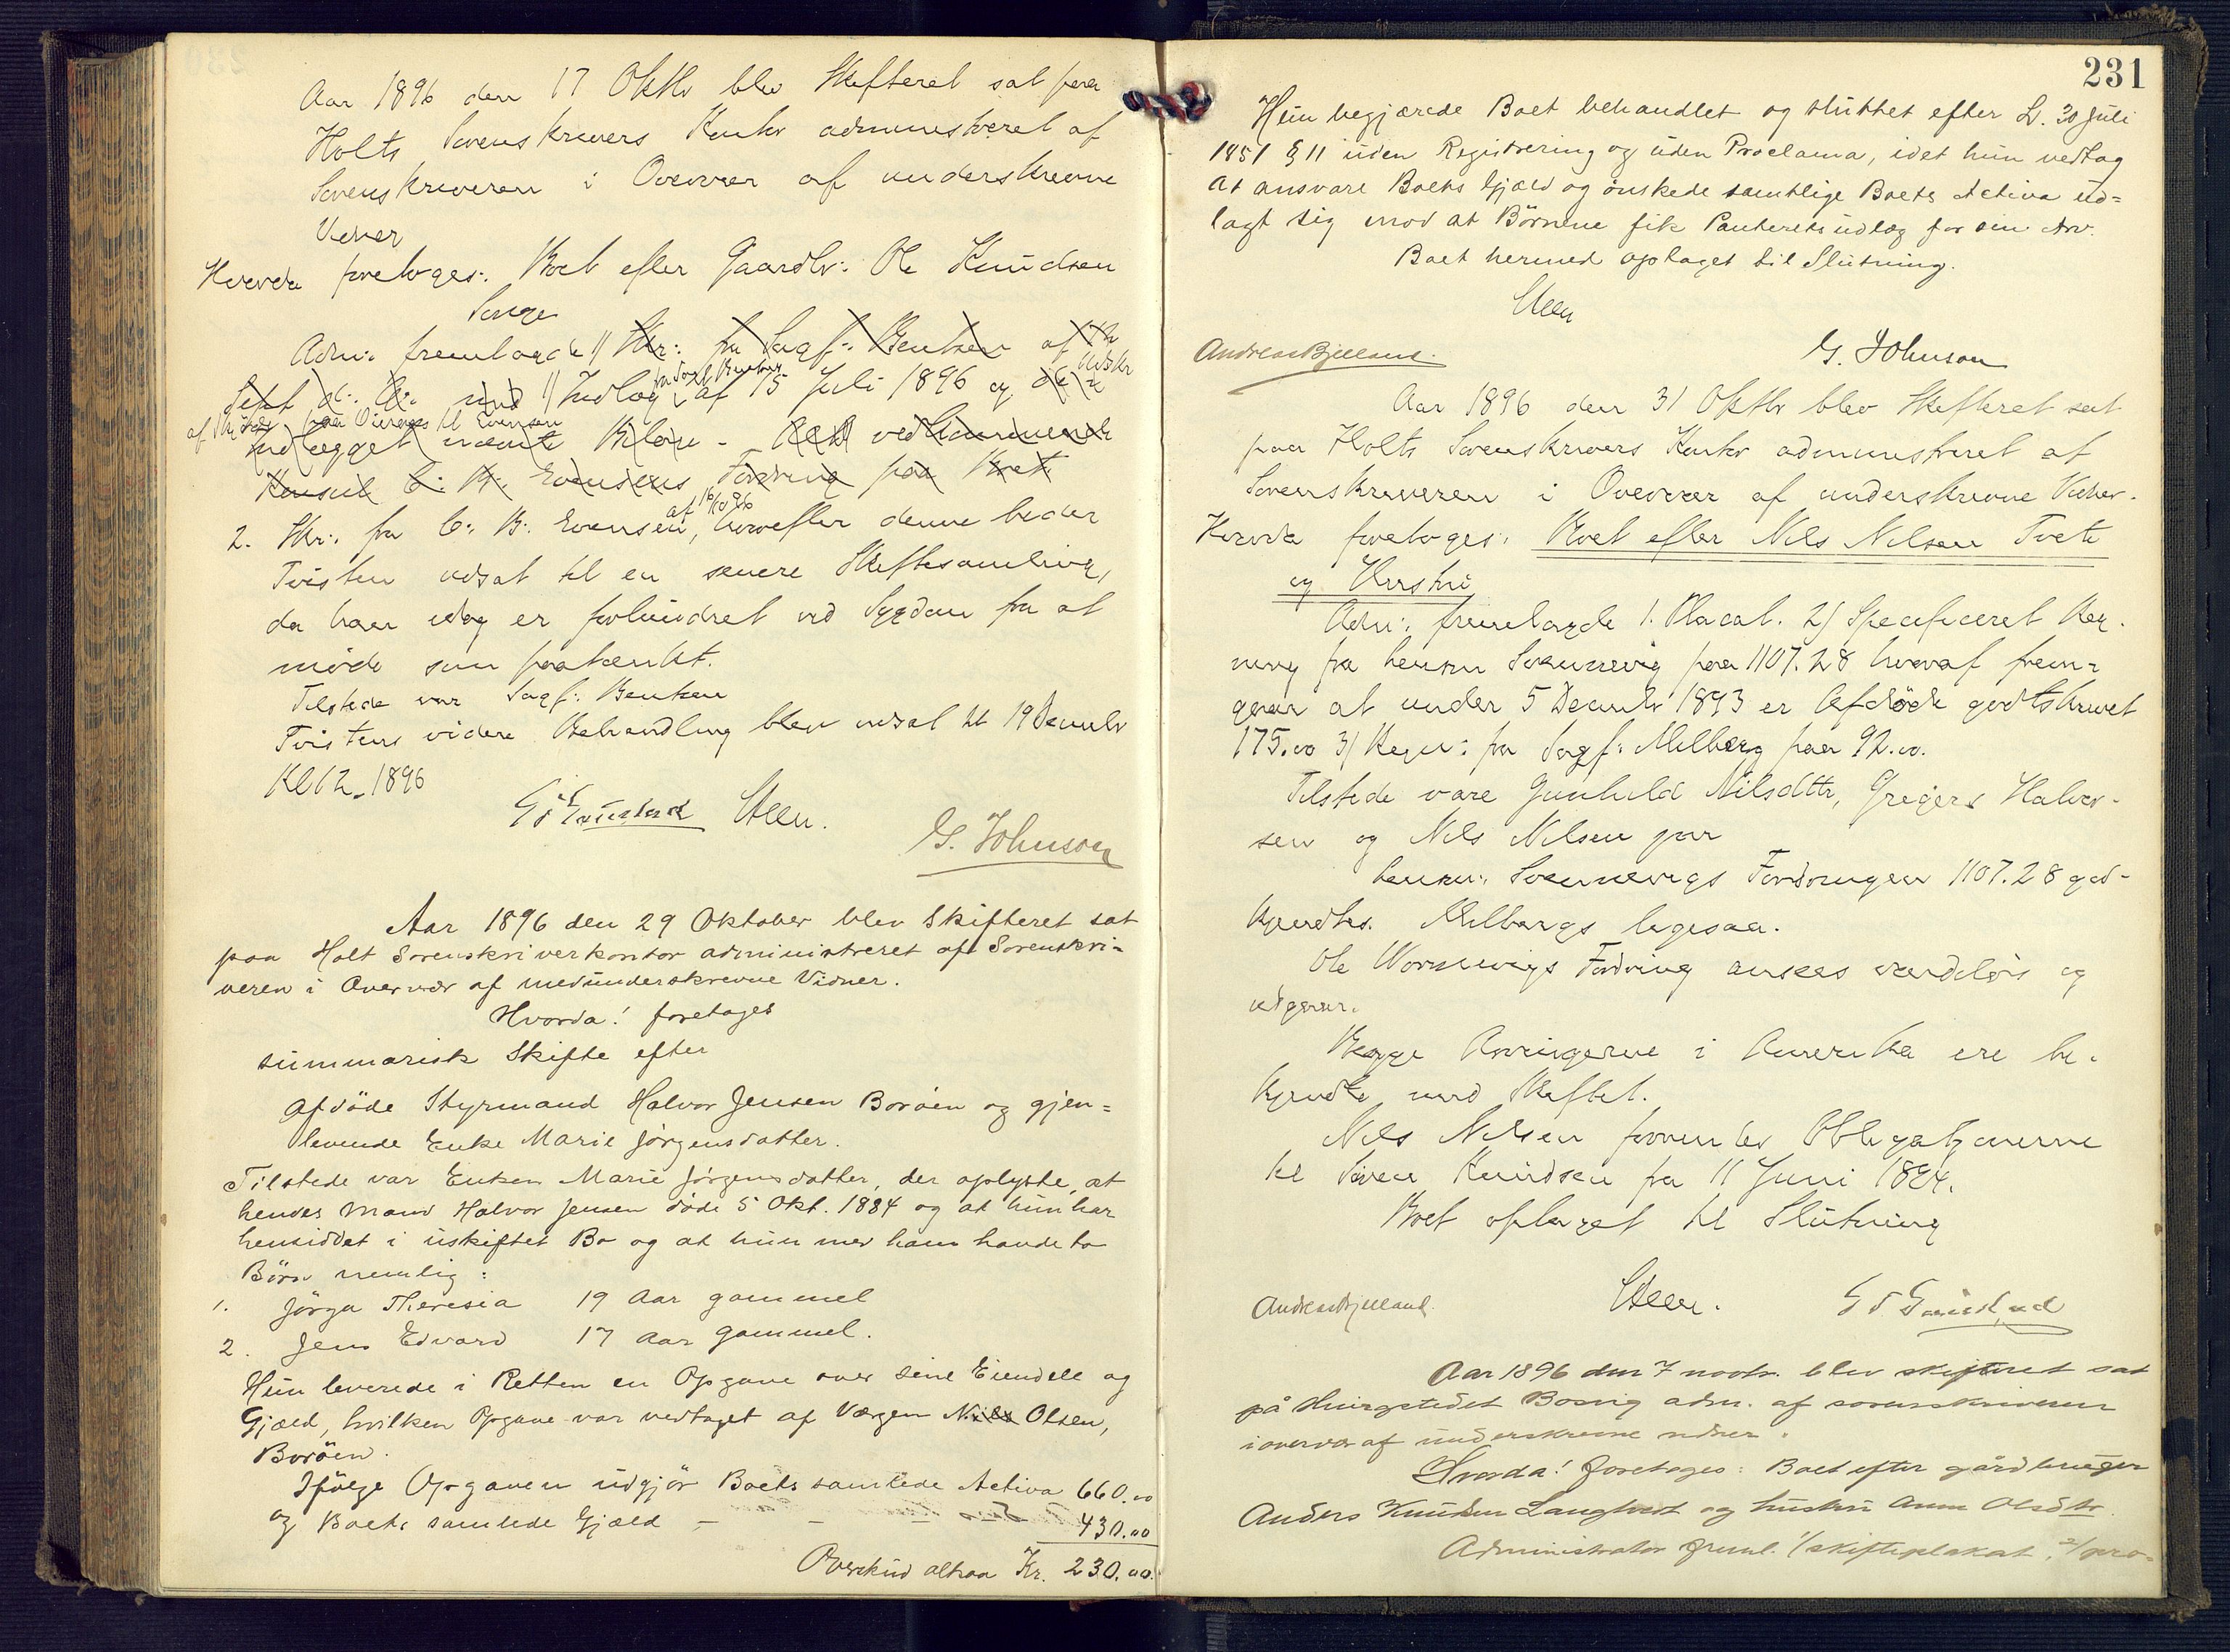 Aar 1896 den 17 Oktbr blev Skifteret sat paa
Holts Sorenskrivers Kontor administreret af
Sorenskriveren i Overvær af underskrevne
Vidner
Hvorda foretoges: Boet efter Gaardbr: Ole Knudsen
Songe
Adm: fremlagde 1/ Skr: fra Sagf: Bentsen af
Sept d: A: med 1/ Indlæg fra Sagf Bentsen af 15 Juli 1896 og Udskr
af paa til Evensen
indlægget nævnte Beløn - vedkommende
Konsul C: B: Evensens Fordring paa Boet
2. Skr: fra C: B: Evensen, af 16/10 96 hvorefter denne beder
Tvisten udsat til en senere Skiftesamling,
da han idag er forhindret ved Sygdom fra at
møde som paatænkt.
Tilstede var Sagf: Bentsen
Tvistens videre Behandling blev udsat til 19 Decembr
Kl 12 1896
Steen.
G. Johnson
Aar 1896 den 29 Oktober blev Skifteret sat
paa Holt Sorenskriverkontor administreret af Sorenskri-
veren i Overvær af medunderskrevne Vidner.
Hvorda! foretoges
summarisk Skifte efter
afdöde Styrmand Halvor Jensen Boröen og gjen=
levende Enke Marie Jörgensdatter.
Tilstede var Enken Marie Jörgensdatter, der oplyste, at
hendes Mand Halvor Jensen döde 5 Okt. 1884 og at hun har
hensiddet i uskiftet Bo og at hun med ham havde to
Börn nemlig:
1. Jörga Theresia 19 Aar gammel
2. Jens Edvard 17 Aar gammel.
Hun leverede i Retten en Opgave over sine Eiendele og
Gjæld, hvilken Opgave var vedtaget af Værgen Niels Olsen,
Boröen.
Ifölge Opgaven udgjör Boets samlede Activa 660.00
og Boets samlede Gjæld - - 430.00
Overskud altsaa Kr. 230.00.
231
Hun begjærede Boet behandlet og sluttet efter L. 30 Juli
1851 § 11 uden Registrering og uden Proclama, idet hun vedtog
at ansvare Boets Gjæld og önskede samtlige Boets Activa ud=
lagt sig mod at Börnene fik Panteretsudlæg for sin Arv.
Boet hermed optaget til Slutning.
Steen
Andreas Bjelland. G. Johnson
Aar 1896 den 31 Oktbr blev Skifteret sat
paa Holts Sorenskrivers Kontor administreret af
Sorenskriveren i Overvær af underskrevne Vidner.
Hvorda foretoges: Boet efter Nils Nilsen Tveite
og Hustru
Adm: fremlagde 1. Placat. 2/ Specificeret Reg-
ning fra Svennevig paa 1107.28 hvoraf frem=
gaar at under 5 Decembr 1893 er Afdöde godtskrevet
175.00 3/ Regn: fra Sagf: Melberg paa 92.00.
Tilstede vare Gunhild Nilsdttr, Gregers Halvor-
sen og Nils Nilsen jun
Svennevigs Fordringen 1107.28 god-
kjendtes. Melbergs ligesaa.
Ole Fordring ansees værdelös og
udgaar.
Begge Arvingerne i Amerika ere be-
kjendte med Skiftet.
Nils Nilsen Obligationerne
til Sören Knudsen fra 11 Juni 1884.
Boet optaget til Slutning
Andreas Bjelland. Steen.
Aar 1896 den 7 novbr. blev skifteret sat
på thingstedet Bosvig adm. af sorenskriveren
i overvær af underskrevne vidner.
Hvorda! foretoges: Boet efter gårdbruger
Anders Knudsen Langtvet og hustru Anne Olsdtr
Administrator freml. 1/ skifteplakat, 2/ pro-